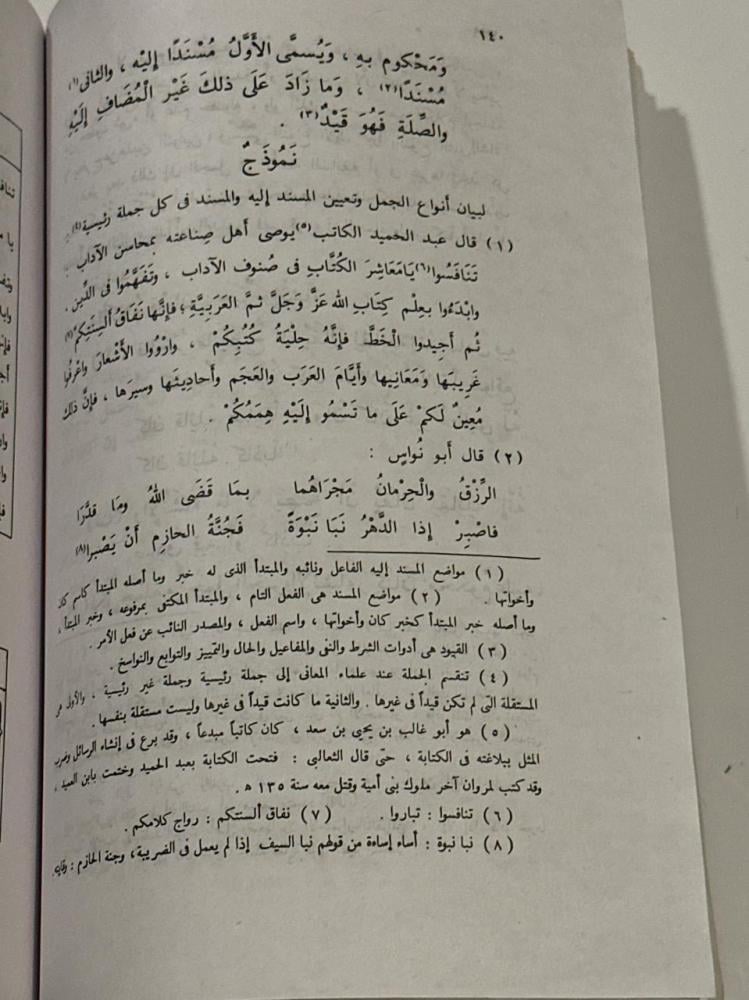 ١٤٠
وَمَحْكوم بهِ ، وَيُسمَّى الأوَّلُ مُسْنَدًا إليْه ، والثانى(١)
مُسْنَدًا(٢) ، وَما زَادَ عَلَى ذلكَ غَيْر الْمُضَافِ إِلَيْهِ
والصِّلَةِ فهُوَ قَيْدٌ(٣) .
نَمُوذَجٌ
لبيان أنواع الجمل وتعيين المسند إليه والمسند فى كل جملة رئيسية(٤)
(١) قال عبد الحميد الكاتب(٥)يوصى أهل صِناعته بمحاسن الآداب :
تَنَافَسُوا(٦)يَامَعَاشِرَ الكُتَّابِ فى صُنوف الآداب ، وَتَفَهَّمُوا فى الدِّين.
وابْدَءُوا بعِلْم كِتَابِ الله عَزَّ وَجَلَّ ثمَّ العَرَبيَّةِ ؛ فإنَّها نَفَاقُ ألْسِنَتِكمْ(٧)
ثُم أجِيدوا الْخَطَّ فإنَّهُ حِلْيَةُ كُتُبِكُمْ ، وارْوُوا الأَشْعَارَ واعْرفُوا
غَريبَها وَمَعَانيها وأيَّامَ العَرَب والعَجَم وأحاديثَها وسيرَها ، فإنَّ ذلك
مُعِينٌ لكمْ عَلَى ما تَسْمُو إلَيْهِ هِمَمُكُمْ .
(٢) قال أبو نُواسٍ :
الرِّزْقُ والْحِرْمانُ مَجْرَاهُما بمَا قَضَى اللهُ ومَا قدَّرَا
فاصْبرْ إذا الدَّهْرُ نَبَا نَبْوَةً فَجُنَّةُ الحازِمِ أَنْ يَصْبرا(٨)
(١) مواضع المسند إليه الفاعل ونائبه والمبتدأ الذى له خبر وما أصله المبتدأ كاسم كان
وأخواتها . (٢) مواضع المسند هى الفعل التام ، والمبتدأ المكتفى بمرفوعه ، وخبر المبتدأ ،
وما أصله خبر المبتدأ كخبر كان وأخواتها ، واسم الفعل ، والمصدر النائب عن فعل الأمر .
(٣) القيود هى أدوات الشرط والنفى والمفاعيل والحال والتمييز والتوابع والنواسخ.
(٤) تنقسم الجملة عند علماء المعانى إلى جملة رئيسية وجملة غير رئيسية ، والأولى هى
المستقلة التى لم تكن قيداً فى غيرها . والثانية ما كانت قيداً فى غيرها وليست مستقلة بنفسها .
(٥) هو أبو غالب بن يحيى بن سعد ، كان كاتباً مبدعاً ، وقد برع فى إنشاء الرسائل وضرب
المثل ببلاغته فى الكتابة ، حتى قال الثعالبى : فتحت الكتابة بعبد الحميد وختمت بابن العميد ،
وقد كتب لمروان آخر ملوك بنى أمية وقتل معه سنة ١٣٥ ه .
(٦) تنافسوا : تباروا . (٧) نفاق ألسنتكم : رواج كلامكم .
(٨) نبا نبوة : أساء إساءة من قولهم نبا السيف إذا لم يعمل فى الضريبة، وجنة الحازم : وقايته.